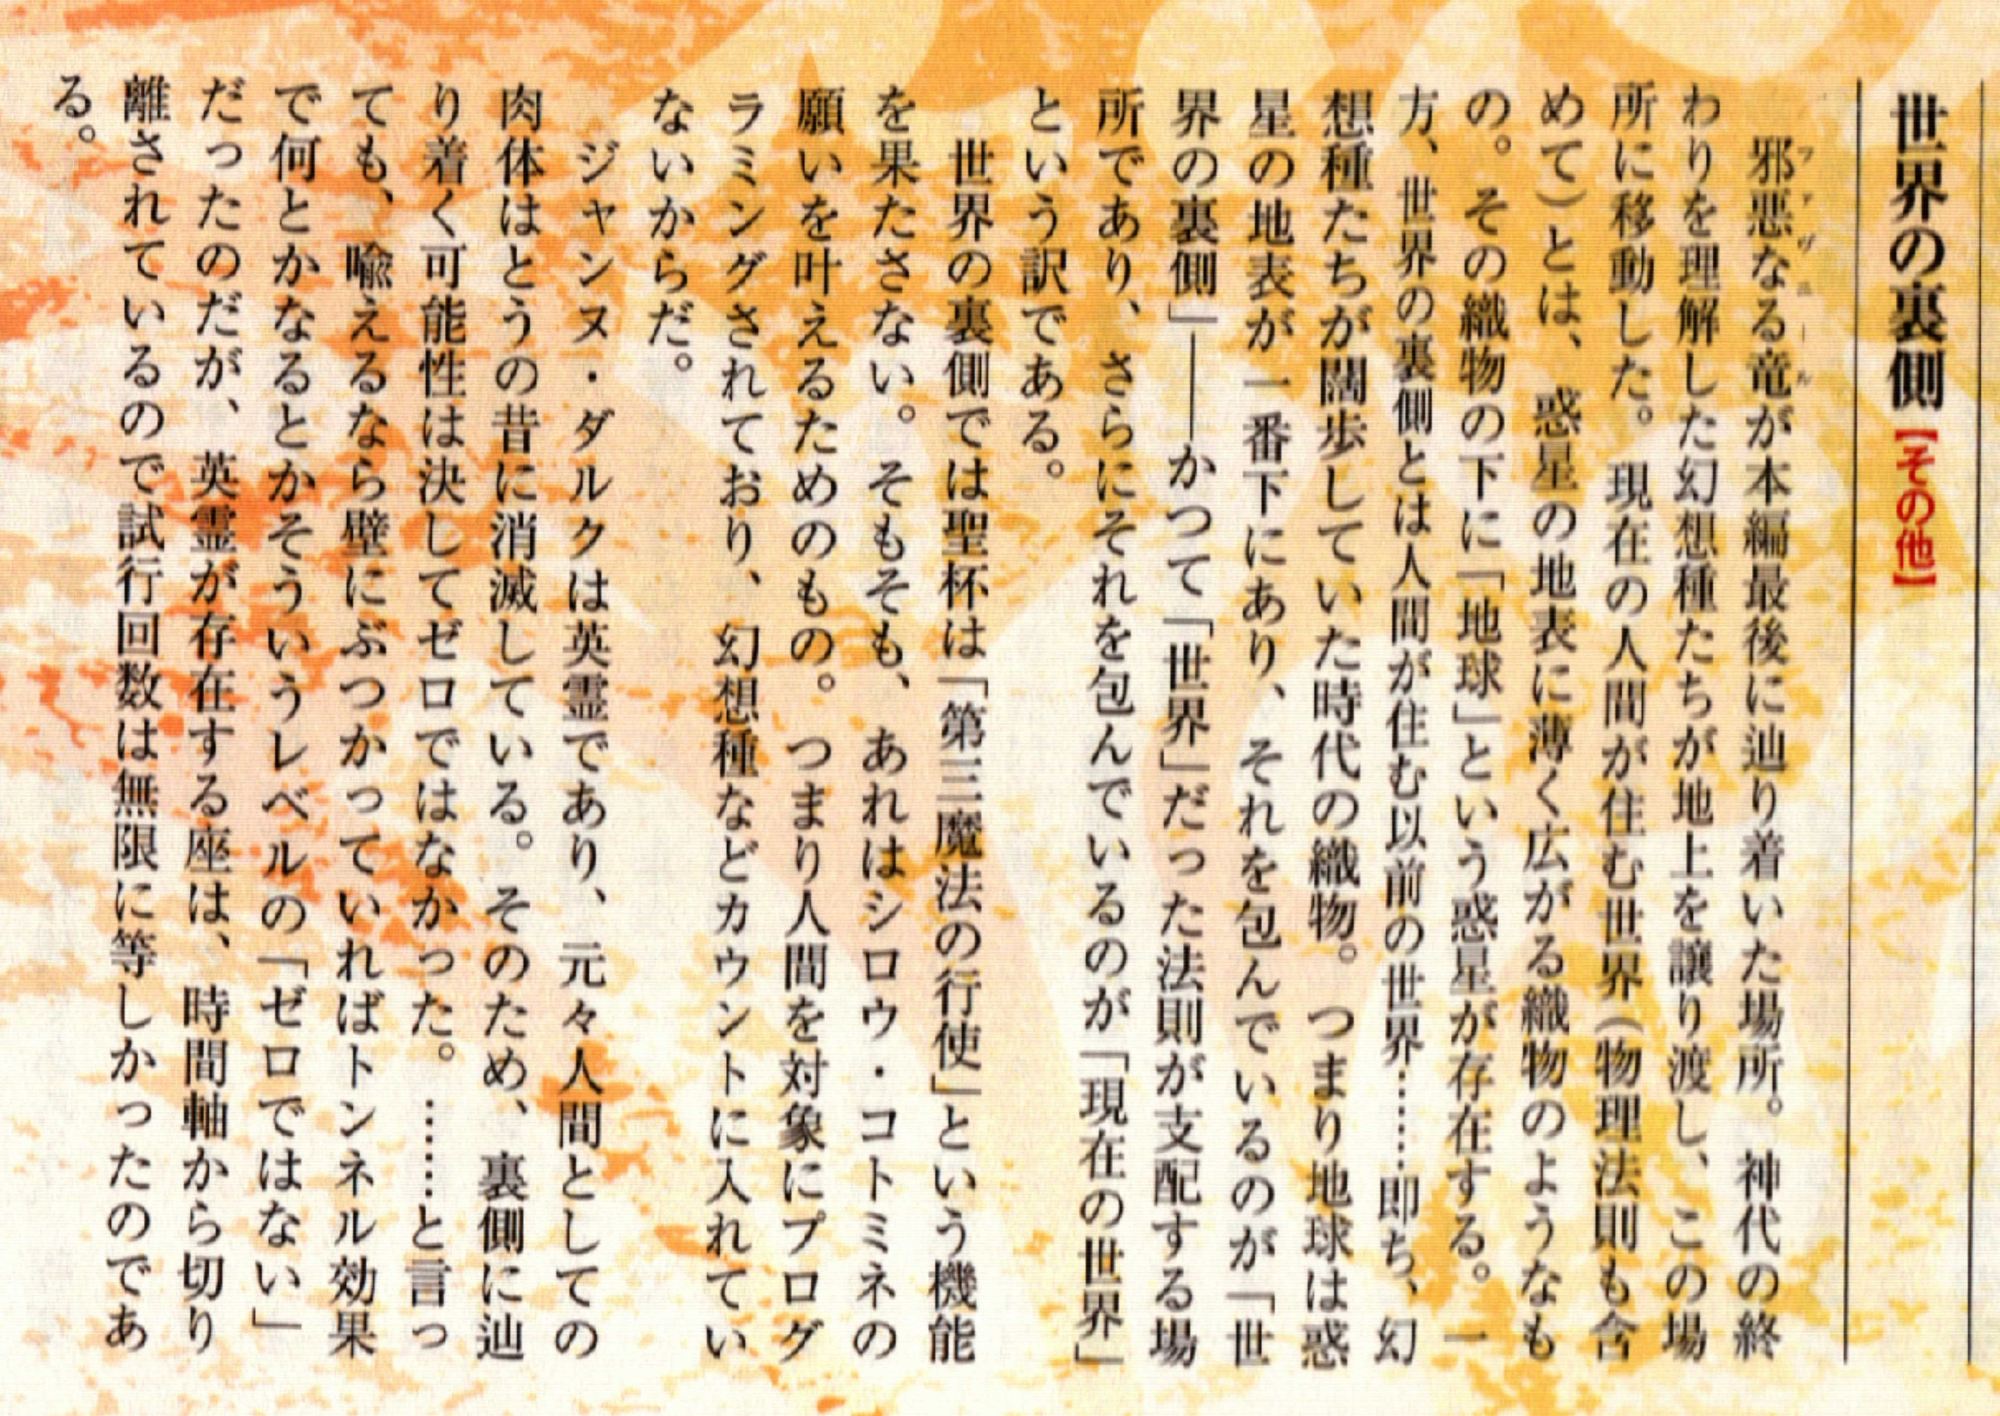 世界の裏側【その他】
邪悪なる竜が本編最後に辿り着いた場所。神代の終
ファヴニール
わりを理解した幻想種たちが地上を譲り渡し、この場
所に移動した。現在の人間が住む世界(物理法則も含
めて)とは、惑星の地表に薄く広がる織物のようなも
の。その織物の下に「地球」という惑星が存在する。一
方、世界の裏側とは人間が住む以前の世界……即ち、幻
想種たちが闊歩していた時代の織物。つまり地球は惑
星の地表が一番下にあり、それを包んでいるのが「世
界の裏側」――かつて「世界」だった法則が支配する場
所であり、さらにそれを包んでいるのが「現在の世界」
という訳である。
世界の裏側では聖杯は「第三魔法の行使」という機能
を果たさない。そもそも、あれはシロウ・コトミネの
願いを叶えるためのもの。つまり人間を対象にプログ
ラミングされており、幻想種などカウントに入れてい
ないからだ。
ジャンヌ・ダルクは英霊であり、元々人間としての
肉体はとうの昔に消滅している。そのため、裏側に辿
り着く可能性は決してゼロではなかった。……と言っ
ても、喩えるなら壁にぶつかっていればトンネル効果
で何とかなるとかそういうレベルの「ゼロではない」
だったのだが、英霊が存在する座は、時間軸から切り
離されているので試行回数は無限に等しかったのであ
る。